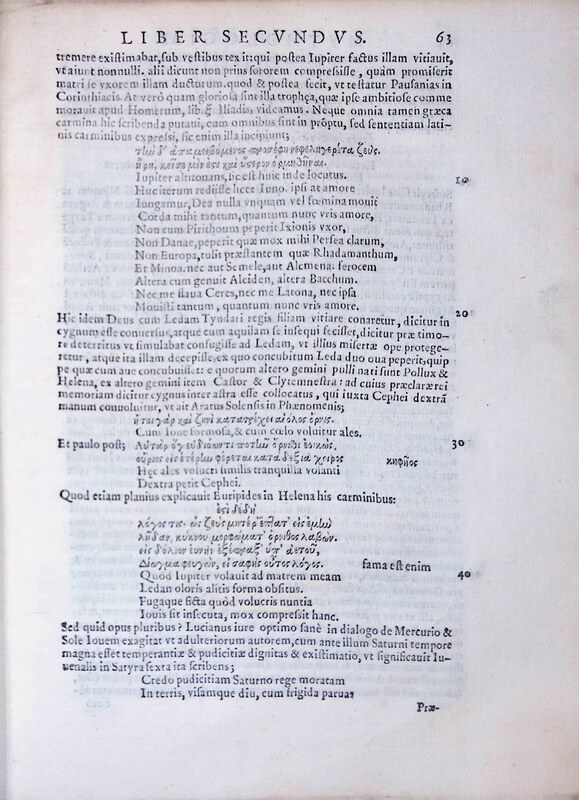 LIBER SECVNDVS. 63
tremere existimabat, sub vestibus texit: qui postea Iupiter factus illam vitiauit,
vt aiunt nonnulli. alii dicunt non prius sororem compressisse, quàm promiserit
matri se vxorem illam ducturum. quod & postea fecit, vt testatur Pausanias in
Corinthiacis. At verò quàm gloriosa sint illa trophęa, quæ ipse ambitiose comme
morauit apud Homerum, lib. ξ. Iliadis, videamus. Neque omnia tamen græca
carmina hîc scribenda putaui, cum omnibus sint in prōptu, sed sententiam lati-
nis carminibus expressi, sic enim illa incipiunt;
τὴν δ' ἀπαμειβόμενος προσέφη νεφεληγερέτα ζεύς.
ἥρη, κεῖσε μὲν ἔστι καὶ ὕστερον ὁρμηθῆναι.
Iupiter altitonans, sic est huic inde locutus. 10
Huc iterum redisse licet Iuno. ipsi at amore
Iungamur, Dea nulla vnquam vel fœmina mouit
Corda mihi tantum, quantum nunc vris amore,
Non cum Pirithoum peperit Ixionis vxor,
Non Danae, peperit quæ mox mihi Persea clarum,
Non Europa, tulit præstantem quæ Rhadamanthum,
Et Minoa. nec aut Semele, aut Alcmena: ferocem
Altera cum genuit Alciden, altera Bacchum.
Nec me flaua Ceres, nec me Latona, nec ipsa
Mouisti tantum, quantum nunc vris amore. 20
Hic idem Deus cum Ledam Tyndari regis filiam vitiare conaretur, dicitur in
cygnum esse conuersus, atque cum aquilam se insequi fecisset, dicitur præ timo-
re deterritus vt simulabat confugisse ad Ledam, vt illius misertæ ope protege-
retur, atque ita illam decepisse, ex quo concubitum Leda duo oua peperit, quip
pe quæ cum aue concubuisset: e quorum altero gemini pulli nati sunt Pollux &
Helena, ex altero gemini item Castor & Clytemnestra: ad cuius præclaræ rei
memoriam dicitur cygnus inter astra esse collocatus, qui iuxta Cephei dextrā
manum conuoluitur, vt ait Aratus Solensis in Phænomenis;
ἤτοι γὰρ καὶ ζηνὶ παρατρέχει αἰόλος ὄρνις.
Cum Ioue formosa, & cum cœlo voluitur ales.
Et paulo post; Αὐτὰρ ὅγ' εὐδιόωντι ποτὴν ὄρνιθι ἐοικὼς, 30
οὔριος εἰς ἑτέρην φέρεται κατὰ δεξιὰ χειρὸς κηφῆος
Hęc ales volucri similis tranquilla volanti
Dextra petit Cephei.
Quod etiam planius explicauit Euripides in Helena his carminibus:
ἐςὶ δὲ δὴ
λόγος τις ὡς ζεὺς μητέρ' ἔπτατ' εἰς ἐμὴν
λήδαν, κύκνου μορφώματ' ὄρνιθος λαβών.
εἰς δόλιον εὐνὴν ἐξέπραξ' ὑπ' ἀετοῦ,
Δίωγμα φεύγων, εἰ σαφὴς οὗτος λόγος. fama est enim
Quod Iupiter volauit ad matrem meam 40
Ledan oloris alitis forma obsitus.
Fugaque ficta quòd volucris nuntia
Iouis sit insecuta, mox compressit hanc.
Sed quid opus pluribus? Lucianus iure optimo sanè in dialogo de Mercurio &
Sole Iouem exagitat vt adulteriorum autorem, cum ante illum Saturni tempore
magna esset temperantiæ & pudicitiæ dignitas & existimatio, vt significauit Iu-
uenalis in Satyra sexta ita scribens;
Credo pudicitiam Saturno rege moratam
In terris, visamque diu, cum frigida paruas
Præ-